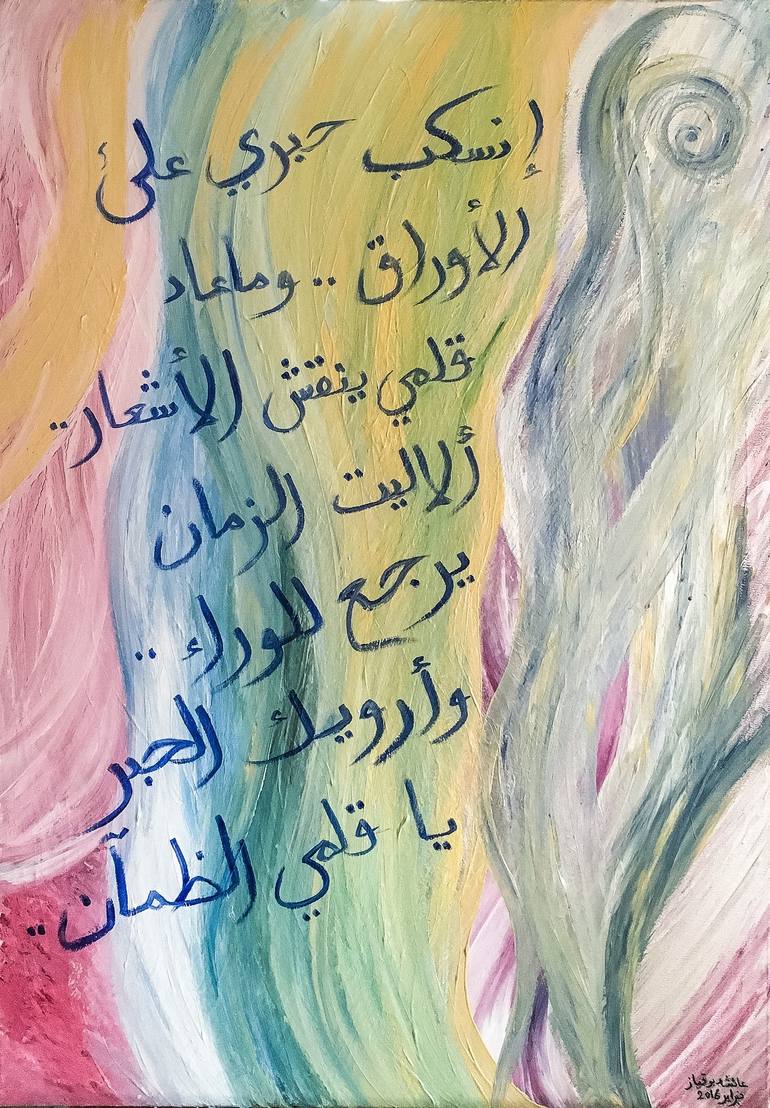 إنسكب حبري على
الأوراق .. وماعاد
قلمي ينقش الأشعار ..
ألاليت الزمان
يرجع للوراء ..
وأرويك الحبر
يا قلمي الظمآن ..
عائشة بوقياز
فبراير 2016